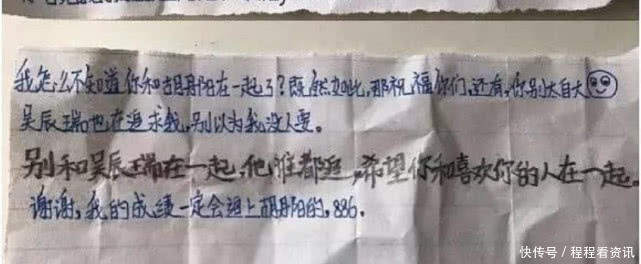 我怎么不知道你和胡丹阳在一起了?既然如此,那祝福你们,还有,你别太自大
吴辰瑞也在追求我,别以为我没人要。
别和吴辰瑞在一起,他谁都追,希望你和喜欢你的人在一起。
谢谢,我的成绩一定会追上胡丹阳的,886.
快传号 / 程程看资讯